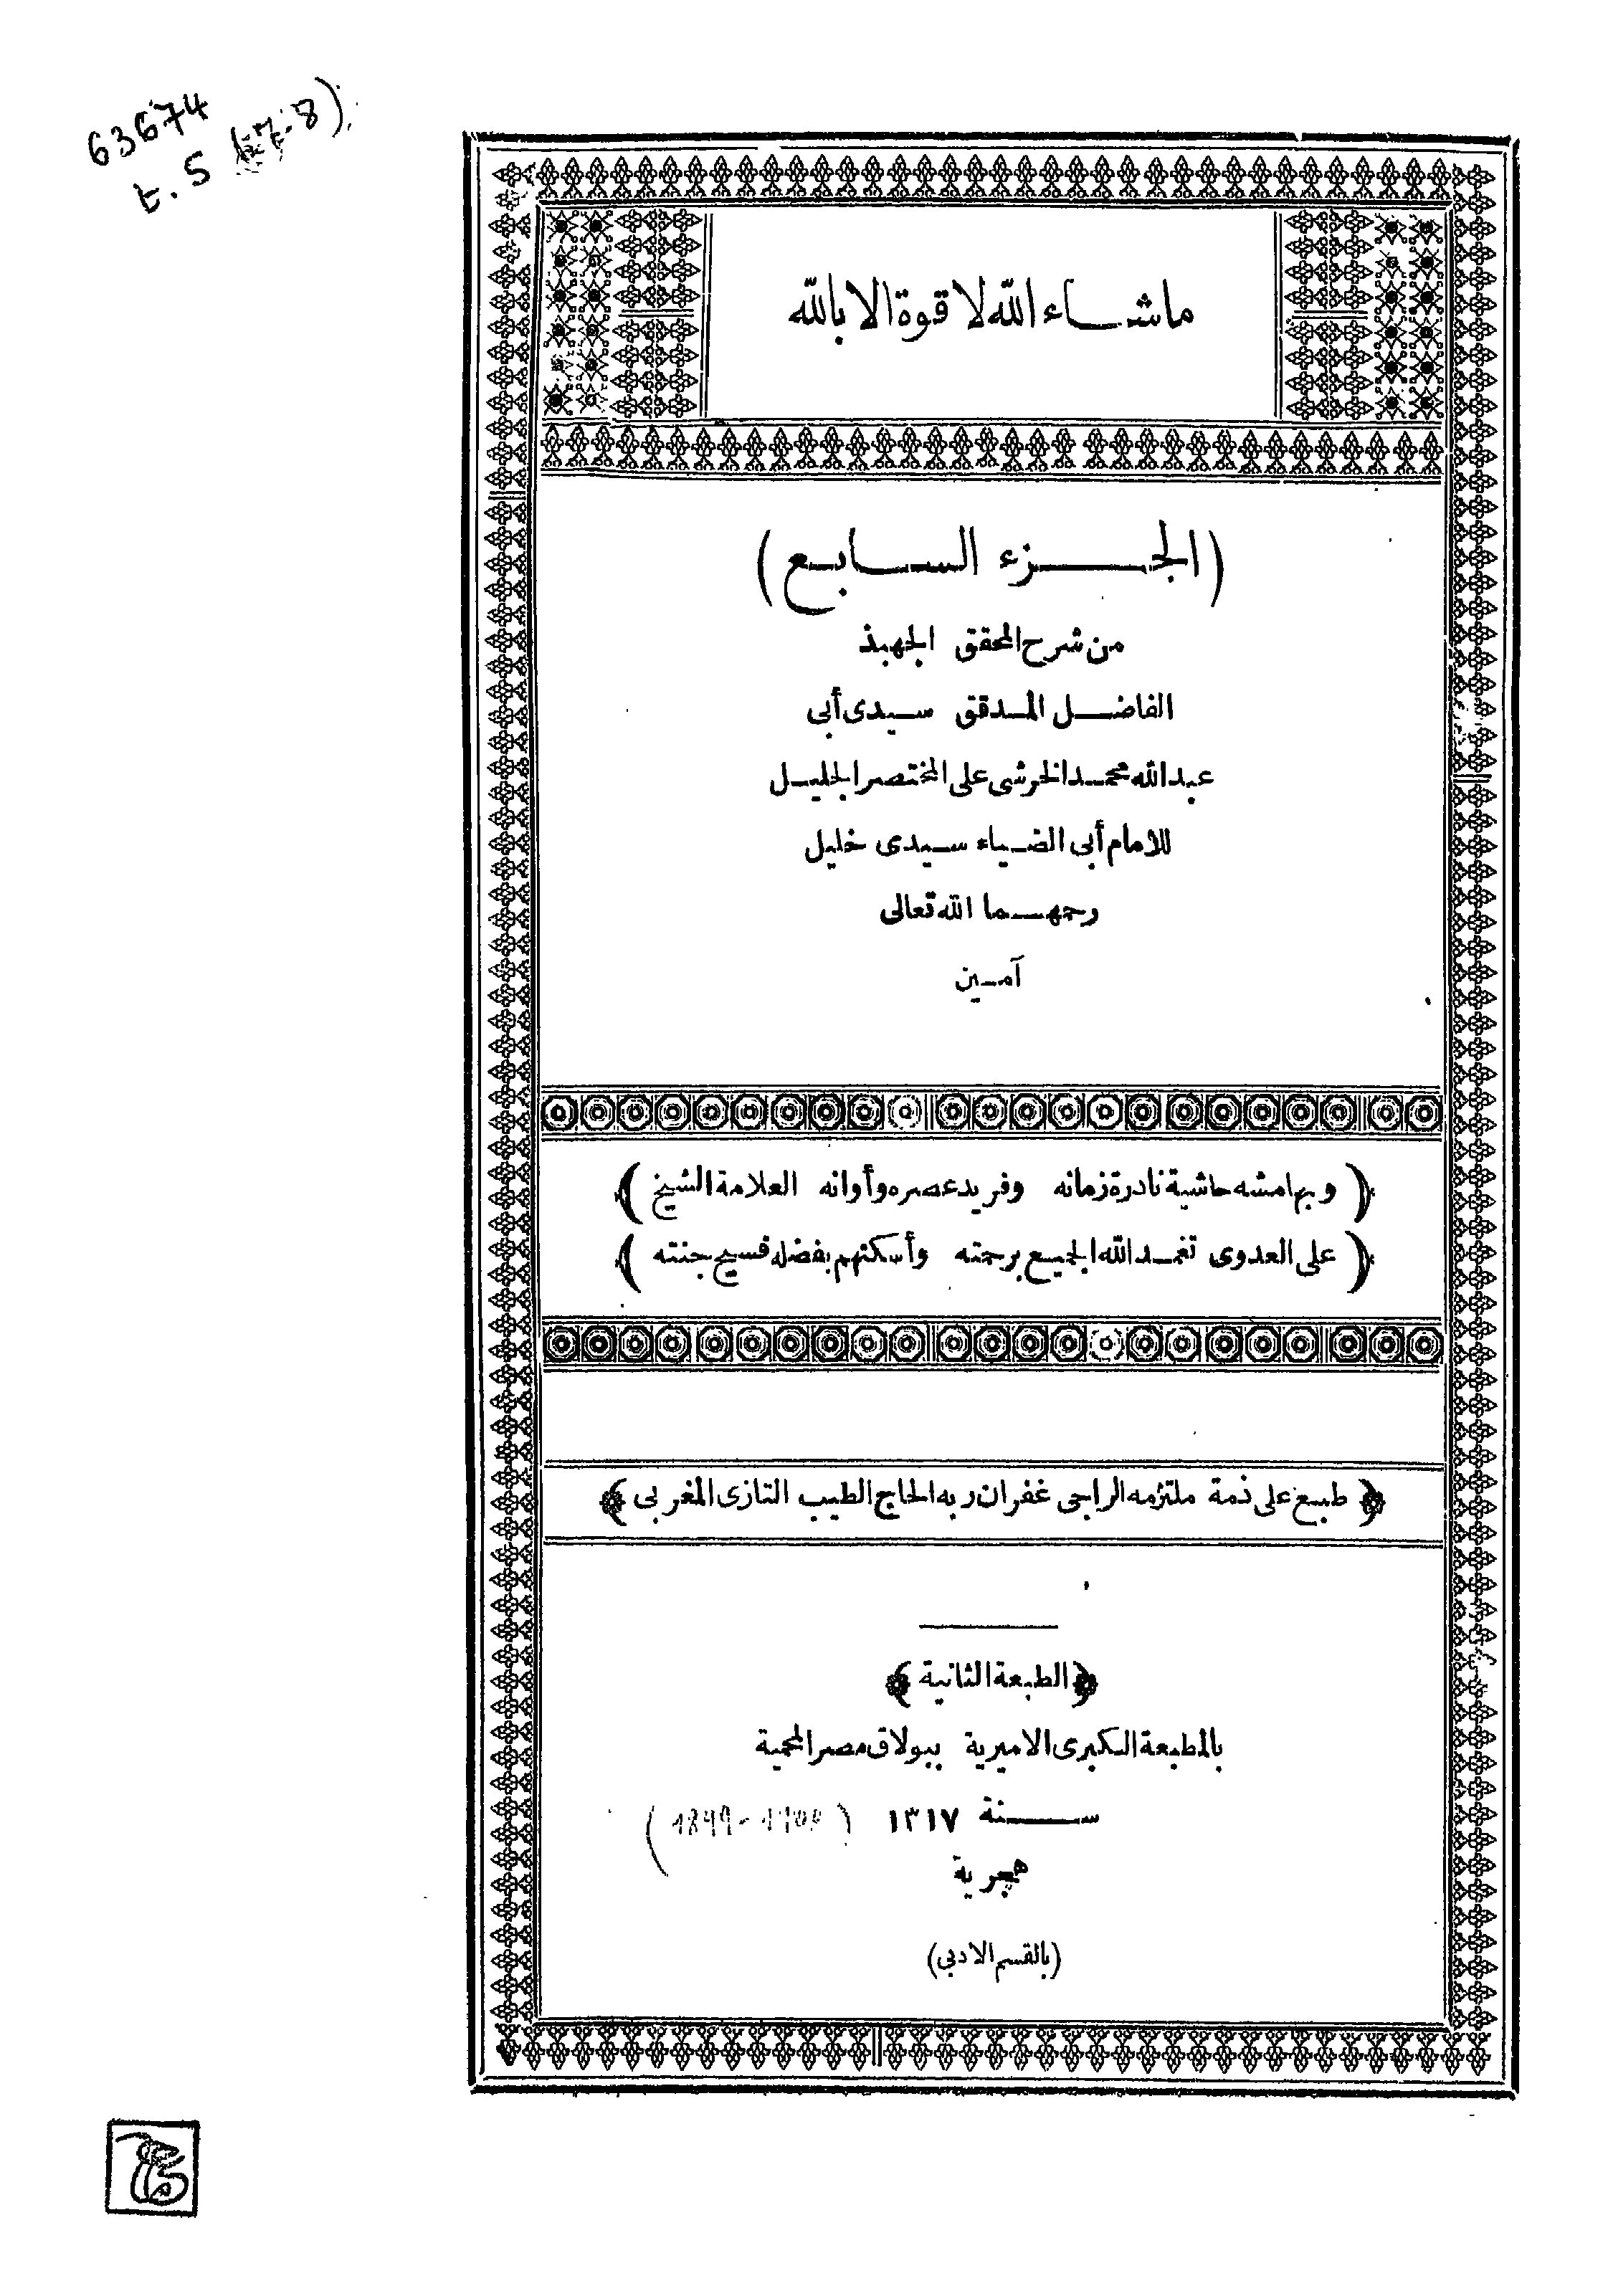 63674
t. 5 (ج. 8)
ماشاء الله لا قوة الا بالله
(الجزء السابع)
من شرح المحقق الجهبذ
الفاضل المدقق سيدى أبى
عبد الله محمد الخرشى على المختصر الجليل
للامام أبى الضياء سيدى خليل
رحمهما الله تعالى
آمين
(وبهامشه حاشية نادرة زمانه وفريد عصره وأوانه العلامة الشيخ)
(على العدوى تغمد الله الجميع برحمته وأسكنهم بفضله فسيح جنته)
﴿طبع على ذمة ملتزمه الراجى غفران ربه الحاج الطيب التازى المغربى﴾
﴿الطبعة الثانية﴾
بالمطبعة الكبرى الاميرية ببولاق مصر المحمية
سنة ١٣١٧ (1899-1900)
هجرية
(بالقسم الادبى)